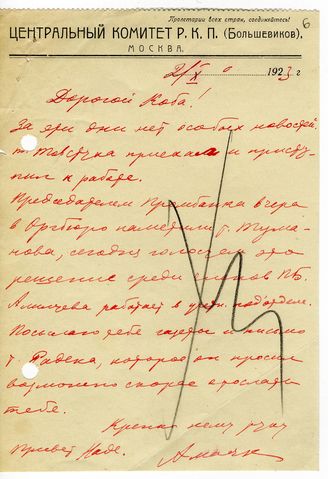 Пролетарии всех стран, соединяйтесь!
6
ЦЕНТРАЛЬНЫЙ КОМИТЕТ Р. К. П. (Большевиков).
МОСКВА.
1923 г
Дорогой Коба!
За эти дни нет особых новостей.
т. Товстуха приехал и присту-
пил к работе.
Председателем Промбанка вчера
в Оргбюро наметили т. Тума-
нова, сегодня голосуем это
решение среди членов ПБ.
работает в подотделе.
Посылаю тебе газеты и письмо
т. Радека, которое он просил
возможно скорее послать
тебе.
Крепко жму руку
Привет Наде.